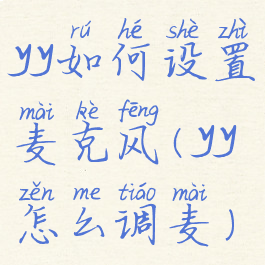 rú hé shè zhì
yy如何设置
mài kè fēng
麦克风(yy
zěn me tiáo mài
怎么调麦)